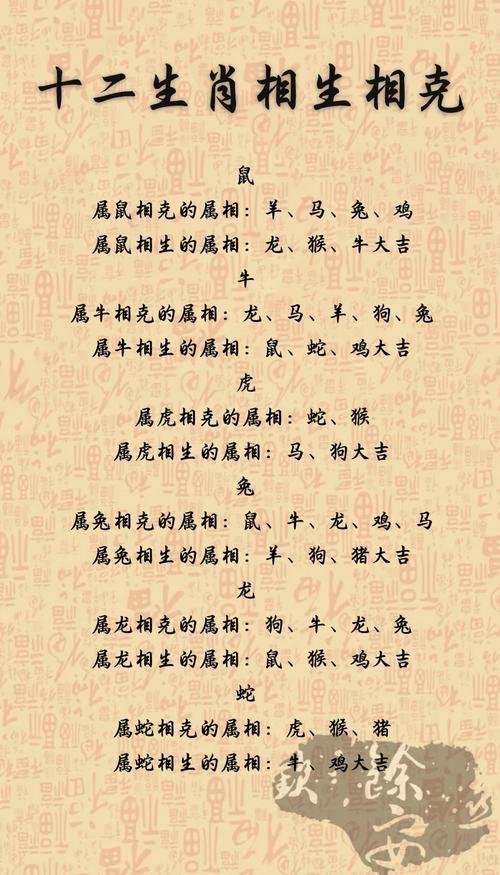 十二生肖相生相克
鼠
属鼠相克的属相：羊、马、兔、鸡
属鼠相生的属相：龙、猴、牛大吉
牛
属牛相克的属相：龙、马、羊、狗、兔
属牛相生的属相：鼠、蛇、鸡大吉
虎
属虎相克的属相：蛇、猴
属虎相生的属相：马、狗大吉
兔
属兔相克的属相：鼠、牛、龙、鸡、马
属兔相生的属相：羊、狗、猪大吉
龙
属龙相克的属相：狗、牛、龙、兔
属龙相生的属相：鼠、猴、鸡大吉
蛇
属蛇相克的属相：虎、猴、猪
属蛇相生的属相：牛、鸡大吉